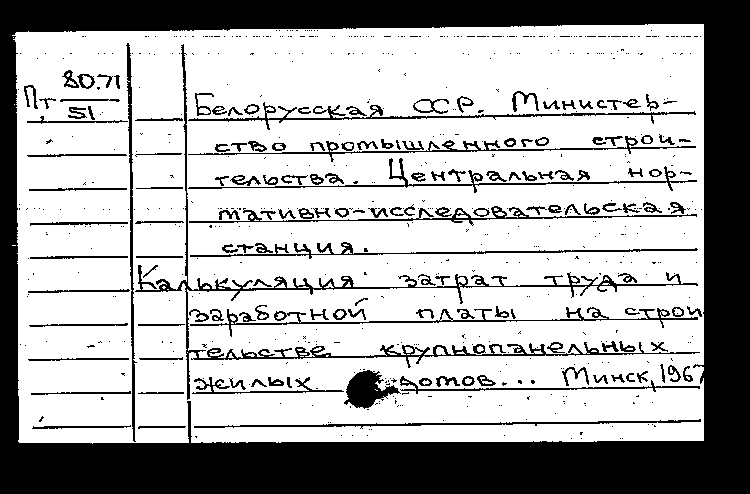 Пт 80.71
51
Белорусская ССР. Министер-
ство промышленного строи-
тельства. Центральная нор-
мативно-исследовательская
станция.
Калькуляция затрат труда и
заработной платы на строи
тельстве крупнопанельных
жилых домов... Минск, 1967